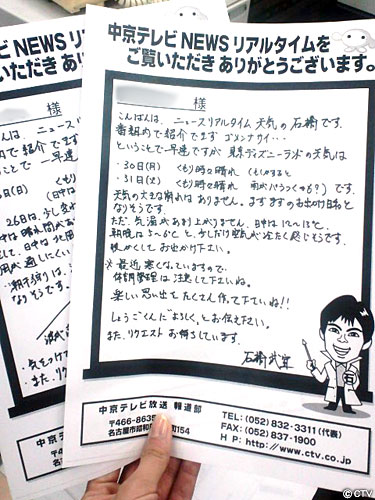 中京テレビNEWSリアルタイムを
ご覧いただき ありがとうございます。
様
こんばんは、ニュースリアルタイム 天気の 石橋です。
番組内で紹介できず ゴメンナサイ…
ということで 早速ですが 東京ディズニーランドの天気は
・30日(月) くもり時々晴れ
・31日(火) くもり時々晴れ 雨がパラつくかも?) です。
天気の大きな崩れは ありません。まずまずのお出かけ日和と
なりそうです。
ただ、気温があまり上がりません。日中は12~13℃、
朝晩は5~6℃と、少しだけ空気が冷たく感じそうです。
暖かくして お出かけ下さい。
※最近 寒くなっていますので、
体調管理には 注意して下さいね。
楽しい思い出を たくさん作って下さいね!!
しょうごくんに“よろしく”とお伝え下さい。
また、リクエスト お待ちしています。
石橋武宜
中京テレビ放送 報道部
〒466-8635
名古屋市昭和区
154
TEL:(052) 832-3311(代表)
FAX:(052) 837-1900
H P: http://www.ctv.co.jp
レビNEWS
いただき あり
様
んばんは、ニュー
組内で紹介で
ことで 早速
中京テレビ放
〒466-8
名古屋市
©CTV